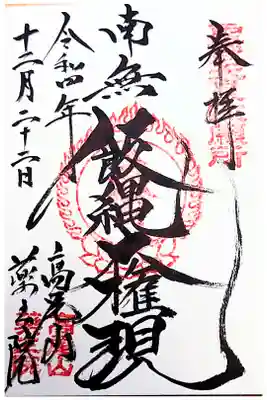 奉拝
南無
飯縄大権現
令和四年
十二月二十二日
高尾山
薬王院